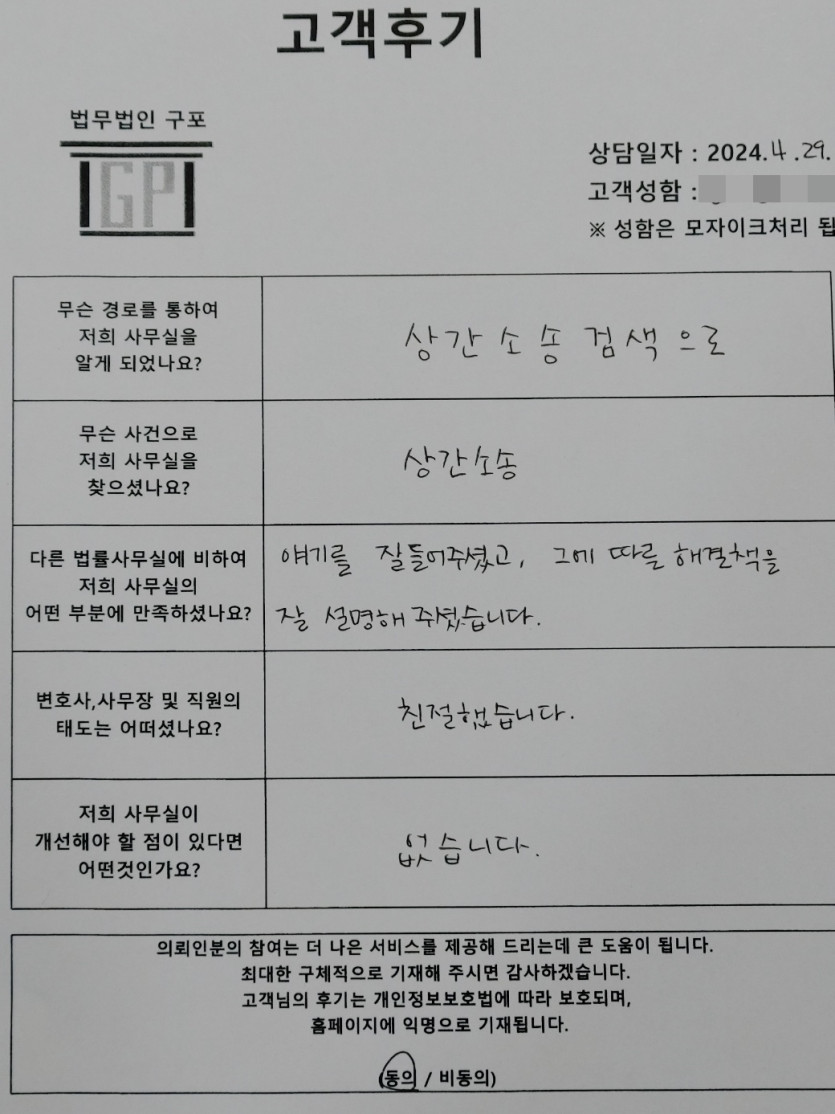 고객후기
법무법인 구포
GP
상담일자 : 2024.4.29.
고객성함 :
※ 성함은 모자이크처리 됩
무슨 경로를 통하여
저희 사무실을
알게 되었나요?
상간소송검색으로
무슨 사건으로
저희 사무실을
찾으셨나요?
상간소송
다른 법률사무실에 비하여
저희 사무실의
어떤 부분에 만족하셨나요?
얘기를 잘들어주셨고, 그에 따른 해결책을
잘 설명해 주셨습니다.
변호사,사무장 및 직원의
태도는 어떠셨나요?
친절했습니다.
저희 사무실이
개선해야 할 점이 있다면
어떤것인가요?
없습니다.
의뢰인분의 참여는 더 나은 서비스를 제공해 드리는데 큰 도움이 됩니다.
최대한 구체적으로 기재해 주시면 감사하겠습니다.
고객님의 후기는 개인정보보호법에 따라 보호되며,
홈페이지에 익명으로 기재됩니다.
(동의 / 비동의)